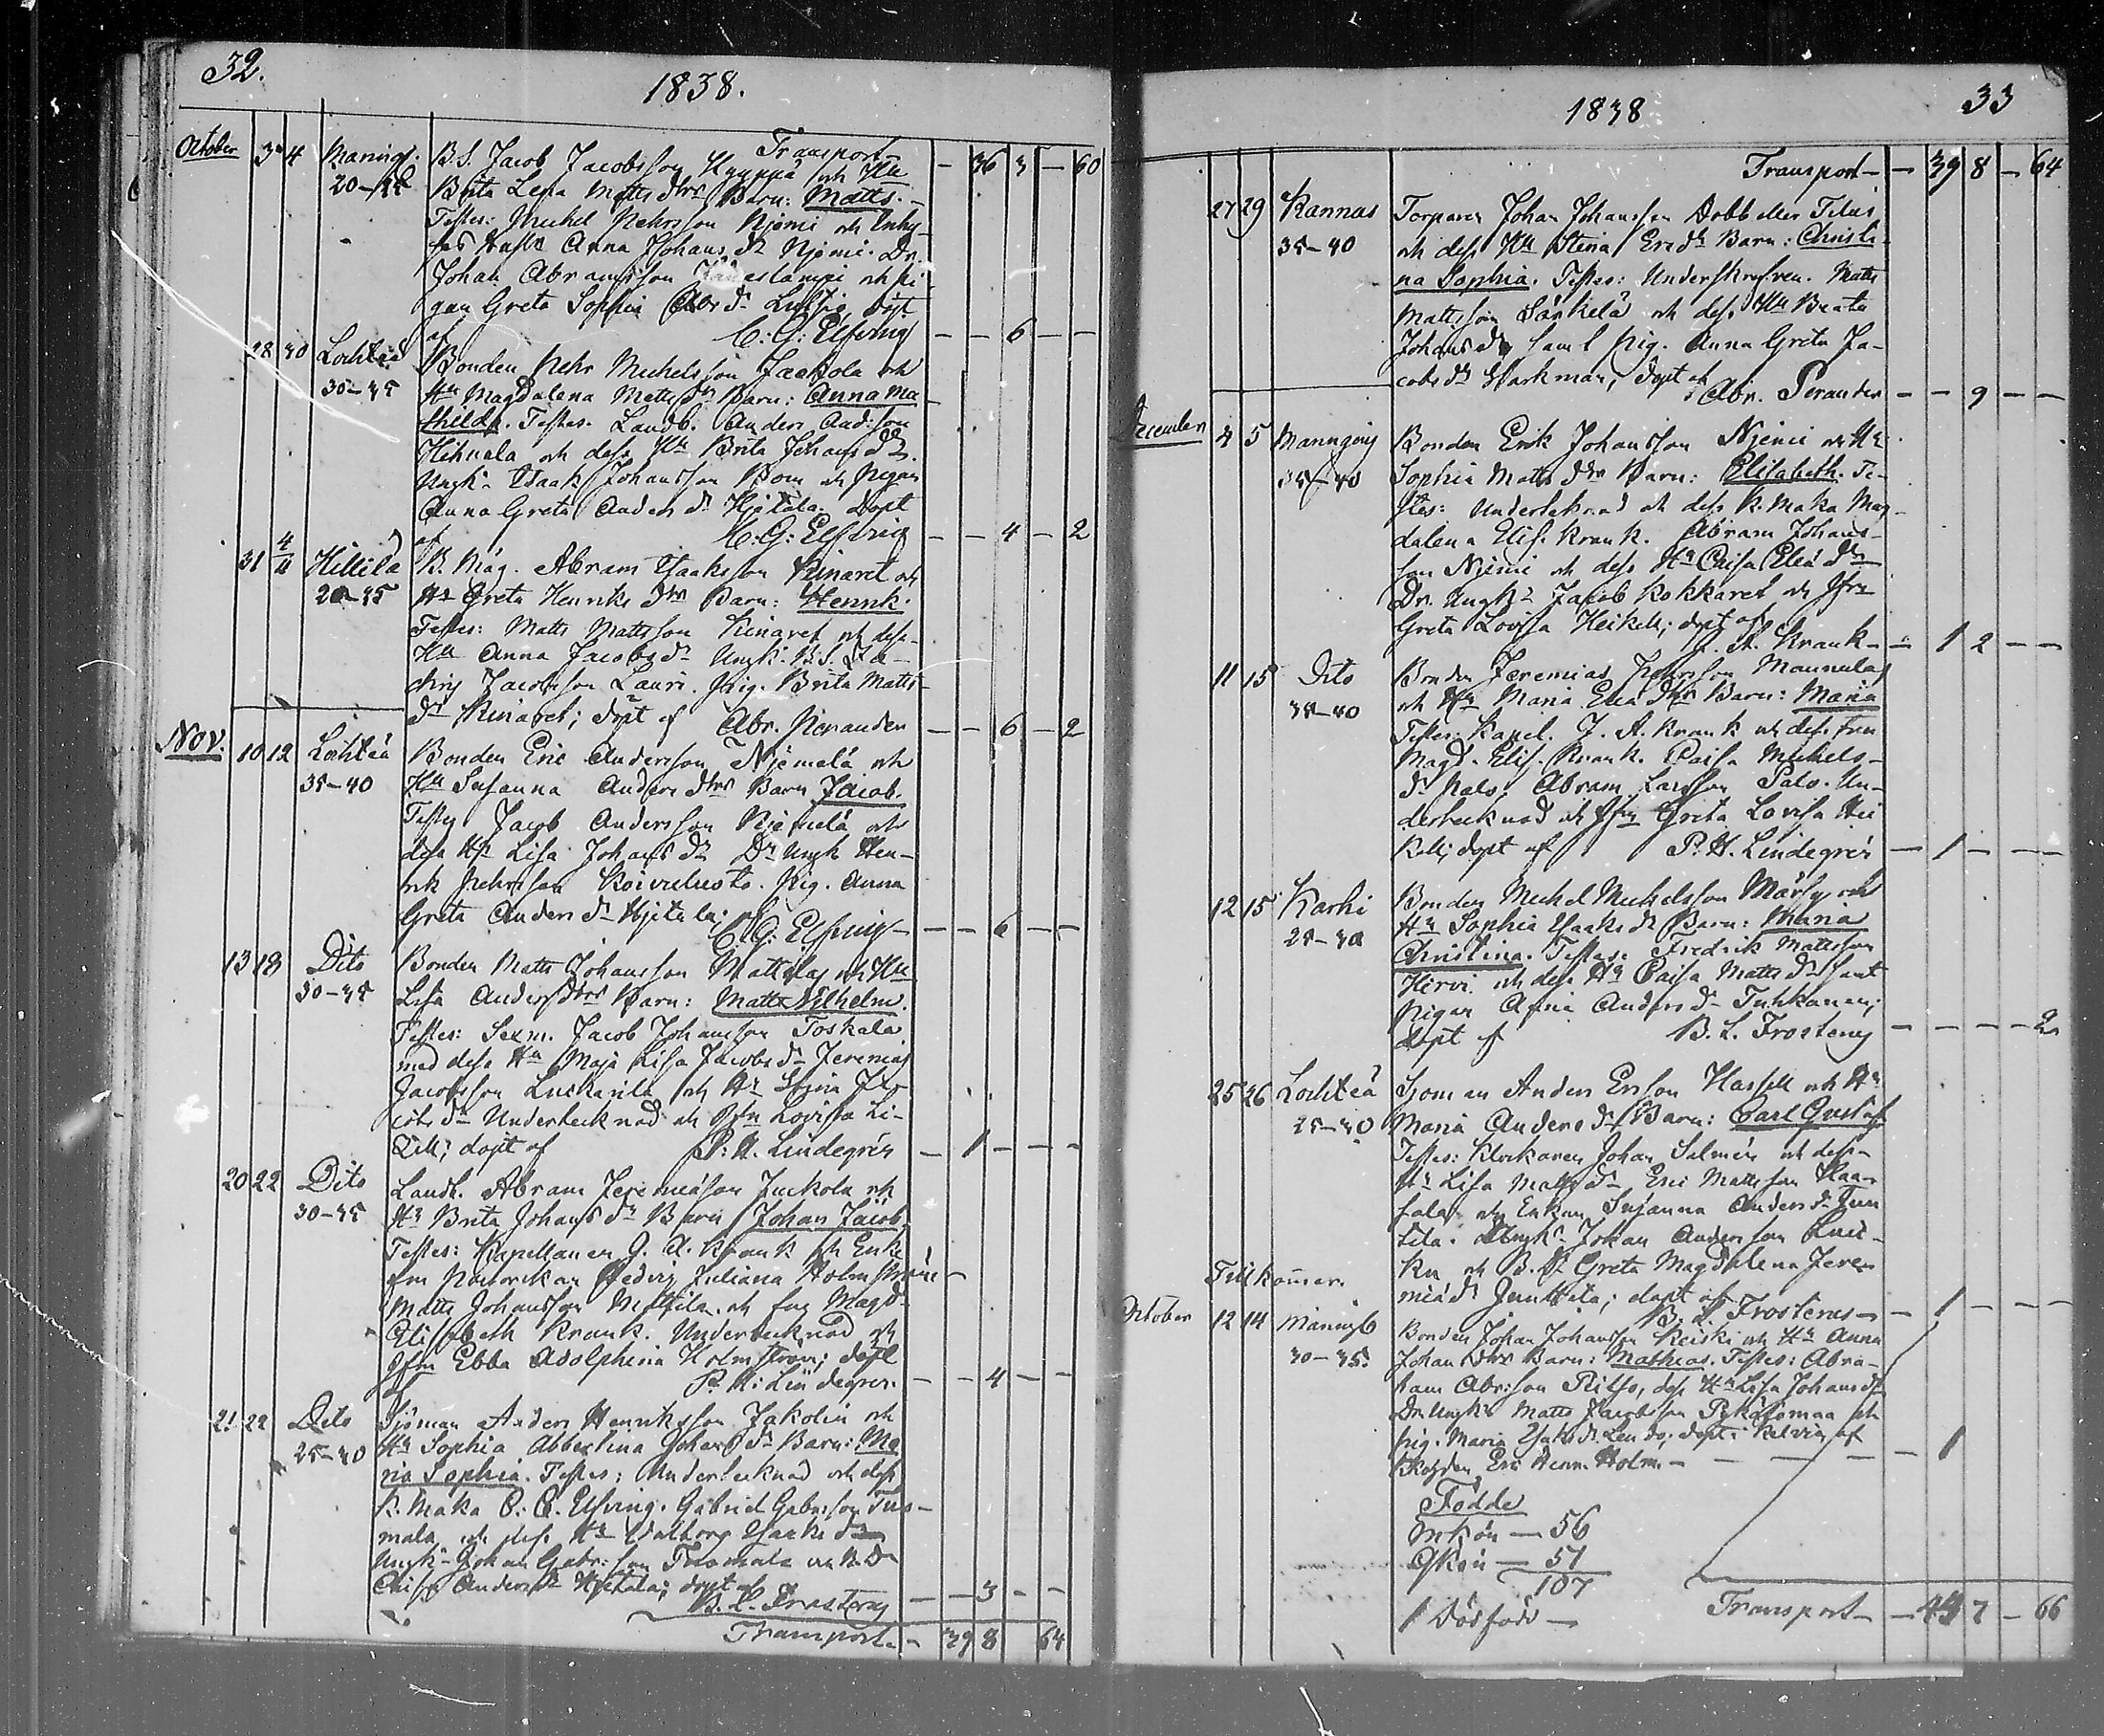 32.
1838.
Transport — 36 3 — 60
October 3 4 Maning. B.S. Jacob Jacobsson Hyyppä och Hu
20–25 Brita Lena Matts dtrs Barn: Matts. —
Testes: Michel Pehrsson Njemi och Inhy-
ses Anna Johans dr Njemi. Dr.
Johan Abramsson och pi-
gan Greta Sophia Abr dr döpt
af C: G: Elfving — — 6 — —
28 30 Lochteå Bonden Pehr Michelsson Jaakola och
30–35 Hu Magdalena Matts dtr Barn: Anna Ma
thilda. Testes. Landb. Anders And:son
Hihnala och dess Hu Brita Johans dr.
Ungk. Isaak Johansson och Pigan
Anna Greta Anders dr Hjetala. Döpt
af C: G: Elfving — — 4 — 2
31 4/11 Hillilä B. Måg. Abram Isaksson Kinaret och
20–25 Hu Greta Henriks dtrs Barn: Henrik.
Testes: Matts Mattsson Kinaret och dess
Hu Anna Jacobs dr Ungk. B.S. Za-
chris Jacobsson Lauri. Pig. Brita Matts
dr Kinaret; döpt af Abr. Perander — — 6 — 2
Nov. 10 12 Lochteå Bonden Eric Andersson Njemelä och
35–40 Hu Susanna Anders dtrs Barn Jacob.
Testes Jacob Andersson Njemelä och
dess Hu Lisa Johans dr Dr Ungk Hen-
rik Pehrsson Koivuluoto. Pig. Anna
Greta Anders dr Hjetala; af
C: G: Elfving — — 6 — —
13 18 Dito Bonden Matts Johansson Mattila och Hu
30–35 Lisa Anders dtrs Barn: Matts Wilhelm.
Testes: Sexm. Jacob Johansson Toskala
med dess Hu Maja Lisa Jacobs dr Jeremias
Jacobsson och Hu Stina Ja-
cobs dr Undertecknad och Jfru Lovisa Li-
döpt af P: H. Lindegrén — 1 — — —
20 22 Dito Landb. Abram Jeremiasson Juckola och
30–35 Hu Brita Johans dr Barn Johan Jacob
Testes: Kapellanen J. A. Krank och Enke
fru Pastorskan Hedvig Juliana Holmström —
Matts Johansson Mattila och fru Magd.
Elisabeth Krank. Undertecknad och
Jfru Ebba Adolphina Holmström; döpt
af P. H: Lindegrén. — — 4 — —
21 22 Dito Sjöman Anders Henriksson Jakolin och
25–30 Hu Sophia Albertina Johans dr Barn: Ma
ria Sophia. Testes: Undertecknad och dess
K. Maka C. C. Elfving. Gabriel Gabr:son Tuo-
mala och dess Hu Walborg Isaks dr
Ungk. Johan Gabr:son Tuomala och B. Dr
Caisa Anders dr Hjetala; döpt af
B. L. Frosterus — — 3 — —
Transport — 39 8 64
33
1838
Transport — — 39 8 — 64
27 29 Kannus Torparen Johan Johansson Dobb eller Titus
35–40 och dess Hu Stina Ers dr Barn: Christi-
na Sophia. Testes: Underskrifven. Matts
Mattsson Särkelä och dess Hu Beata
Johans dr samt pig. Anna Greta Ja-
cobs dr Warkman, döpt af
Abr. Perander — — 9 — —
December 4 5 Manngäng Bonden Erik Johansson Njemi och Hu
35–40 Sophia Matts dtrs Barn: Elisabeth. Te-
stes: Undertecknad och dess K. Maka Mag-
dalena Elis. Krank. Abram Johans-
son Njemi och dess Hu Caisa Elias dr
Dr. Ungk. Jacob Kokkaret och Jfru
Greta Lovisa Heikell; döpt af
J. A. Krank — — 1 2 — —
11 15 Dito Bonden Jeremias Pehrsson Mannula
35–40 och Hu Maria Elias dtr Barn: Maria
Testes: Kapel. J. A. Krank och dess fru
Magd. Elis. Krank. Caisa Michels-
dr Palo. Abram Larsson Palo. Un-
dertecknad och Jfru Greta Lovisa Hei
kell; döpt af P. H. Lindegrén — 1 — — —
12 15 Karhi Bonden Michel Michelsson Märsy och
25–30 Hu Sophia Isaks dr Barn: Maria
Christina. Testes: Fredrik Mattsson
Hirvi och dess Hu Caisa Matts dr samt
pigan Anna Anders dr Tuhkanen;
döpt af B. L. Frosterus — — — — 2
25 26 Lochteå Sjöman Anders Ersson Hassell och Hu
25–30 Maria Anders dr Barn: Carl Gustaf
Testes: Klockaren Johan Salmén och dess
Hu Lisa Matts dr Eric Mattsson Haa-
pala och Enkan Susanna Anders dr Jun
tila. Ungk. Johan Andersson
och B. Dr Greta Magdalena Jere-
mia dr Junttila; döpt af
B. L. Frosterus — — 1 — — —
Tillkommer.
October 12 14 Maning Bonden Johan Johansson Keiski och Hu Anna
30–35. Johans dtrs Barn: Mathias. Testes: Abra-
ham Abr:son dess Hu Lisa Johans dr
Dr. Ungk. Matts Jacobsson och
pig. Maria Isaks dr döpt i Kelviå af
Eric Henr. Holm. — — — — 1
Födde
Mkön — 56
Qkön — 51
107
1 Dödfödd —
Transport — — 44 7 — 66